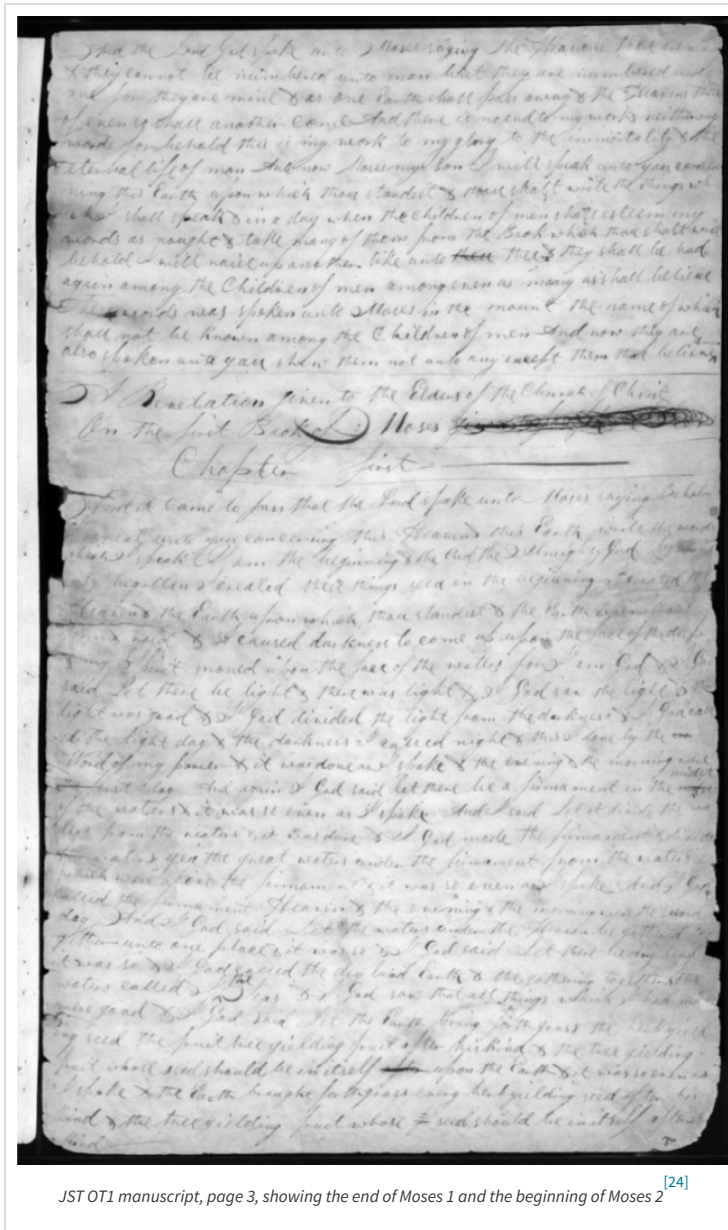 And the Lord God spake unto Moses saying the Heavens there are many
& they cannot be numbered unto man but they are numbered unto
me for they are mine & as one Earth shall pass away & the Heavens there
of even so shall another come And there is no end to my works neither my
words for behold this is my work to my glory to the immortality & the
eternal life of man And now Moses my Son I will speak unto you concer
ning this Earth upon which thou standest & thou shalt write the things wh
ich I shall speak & in a day when the children of men shall esteem my
words as nought & take many of them from the Book which thou shalt write
behold I will raise up another like unto thee & they shall be had
again among the Children of men among even as many as shall believe
These words was spoken unto Moses in the mount the name of which
shall not be known among the Children of men And now they are
also spoken unto you shew them not unto any except them that believe
A Revelation given to the Elders of the Church of Christ
On the first Book of Moses
Chapter first
And it came to pass that the Lord spake unto Moses saying Behold
I reveal unto you concerning this Heaven & this Earth write the words
which I speak I am the beginning & the End the Almighty God
begotten I created these things yea in the beginning I created the
Heaven & the Earth upon which thou standest & the Earth
void & I caused darkness to come up upon the face of the deep
& my Spirit moved upon the face of the waters for I am God & I God
said Let there be light & there was light & I God saw the light & the
light was good & I God divided the light from the darkness & I God call
d the light day & the darkness I called night & this I done by the
Word of my power & it was done as I spake & the evening & the morning were
first day And again I God said let there be a firmament in the midst
of the waters & it was so even as I spake And I said Let it divide the wa
ters from the waters & it was done & I God made the firmament & divided
the waters yea the great waters under the firmament from the waters
which were above the firmament & it was so even as I spake And I God
called the firmament Heaven & the evening & the morning were the second
day And I God said Let the waters under the Heaven be gathered to
gether unto one place & it was so & I God said Let there be dry land
it was so & I God called the dry land Earth & the gathering together of the
waters called I the Seas & I God saw that all things which I had made
were good & I God said Let the Earth bring forth grass the herb yield
ing seed the fruit tree yielding fruit after his kind & the tree yielding
fruit whose seed should be in itself upon the Earth & it was so even as
I spake & the Earth brought forth grass every herb yielding seed after his
kind & the tree yielding fruit whose seed should be in itself after his
kind
JST OT1 manuscript, page 3, showing the end of Moses 1 and the beginning of Moses 2[24]